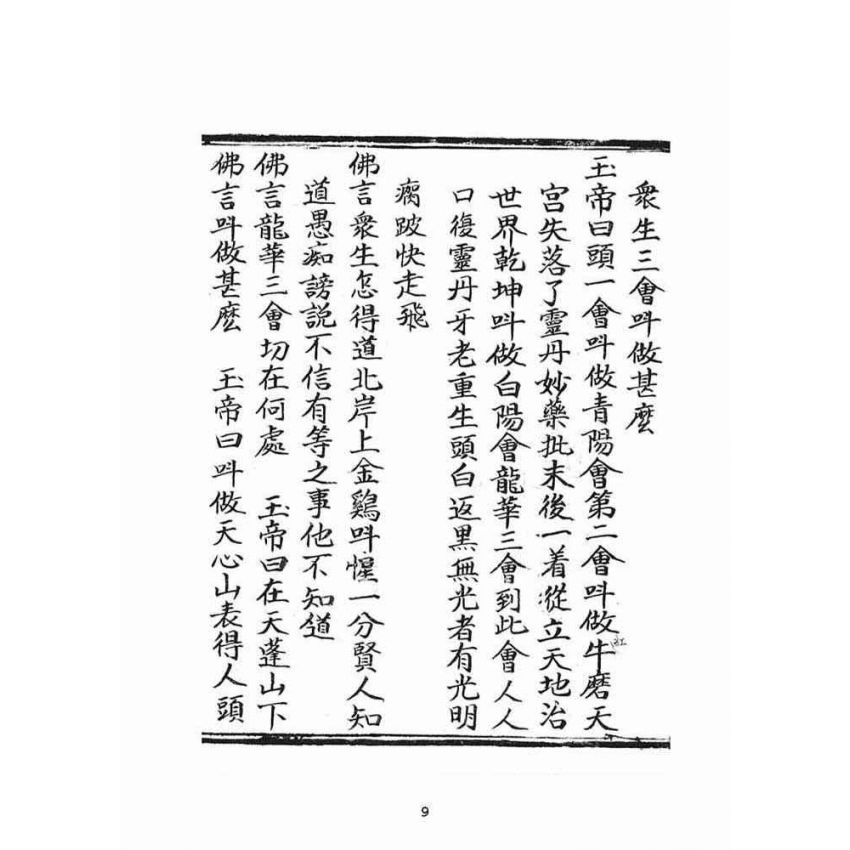 衆生三會呌做甚麽
玉帝曰頭一會呌做青陽會第二會呌做牛磨天
紅
宫失落了靈丹妙藥批末後一着從立天地治
世界乾坤呌做白陽會龍華三會到此會人人
口復靈丹牙老重生頭白返黑無光者有光明
瘸跛快走飛
佛言衆生怎得道北岸上金鷄呌惺一分賢人知
道愚痴謗説不信有等之事他不知道
佛言龍華三會切在何處 玉帝曰在天蓬山下
佛言呌做甚麽 玉帝曰呌做天心山表得人頭
9